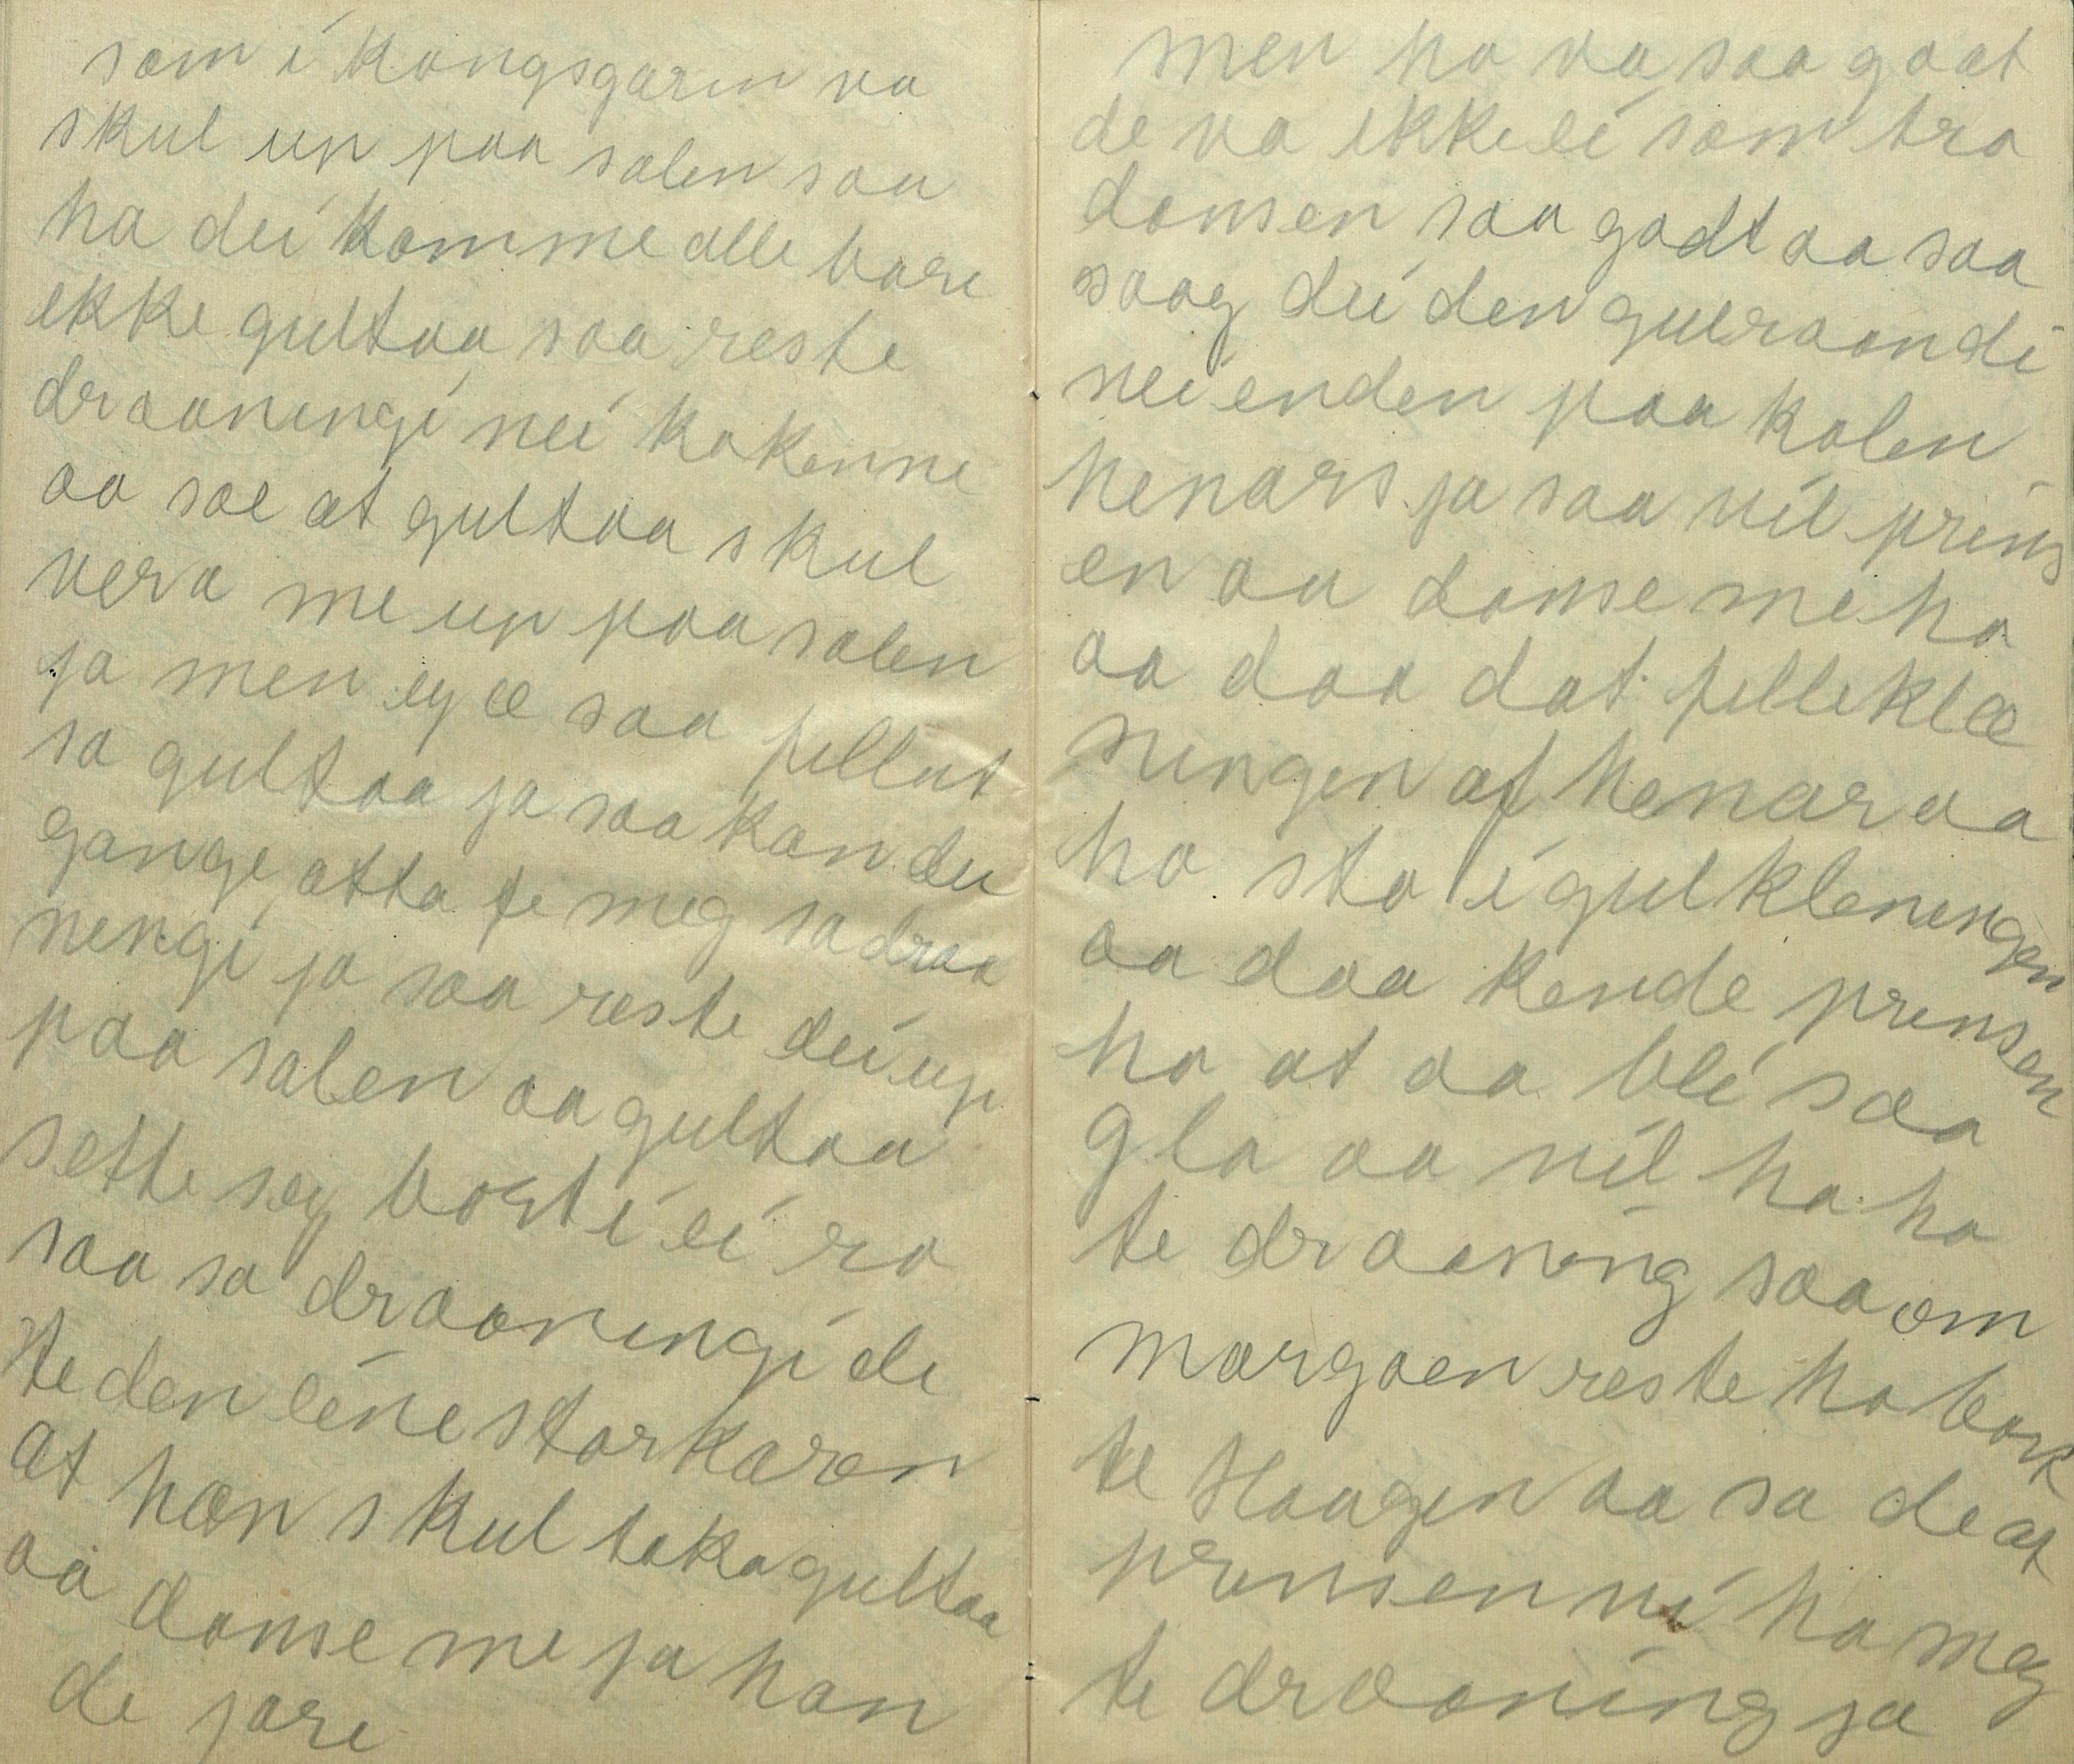 som i kongsgarin va
skul up paa salen saa
ha dei komme alle bare
ikke gultaa saa reste
drooningi nei kokenne
aa sae at gultaa skul
vera me up paa salen
ja men eg æ saa fillut
sa gultaa ja saa kan du
gange atta te meg sa droo
ningi ja saa reste dei up
paa salen aa gultaa
sette seg bort i ei ro
saa sa drooningi de
te den eine storkaren
at han skul taka gultaa
aa danse me ja han
de jore
men ho va saa goat
de va ikke ei som tra
dansen saa godt aa saa
saag dei den gulraandi
nei enden paa kolen
henars ja saa vil prins
en aa danse me ho
aa daa dat filleklæ
ningen af henar aa
ho sto i gulkleningen
aa daa kende prinsen
ho at aa blei saa
gla aa vil ha ho
te drooning saa om
morgoen reste ho bort
te Haagen aa sa de at
prinsen vi ha meg
te drooning ja